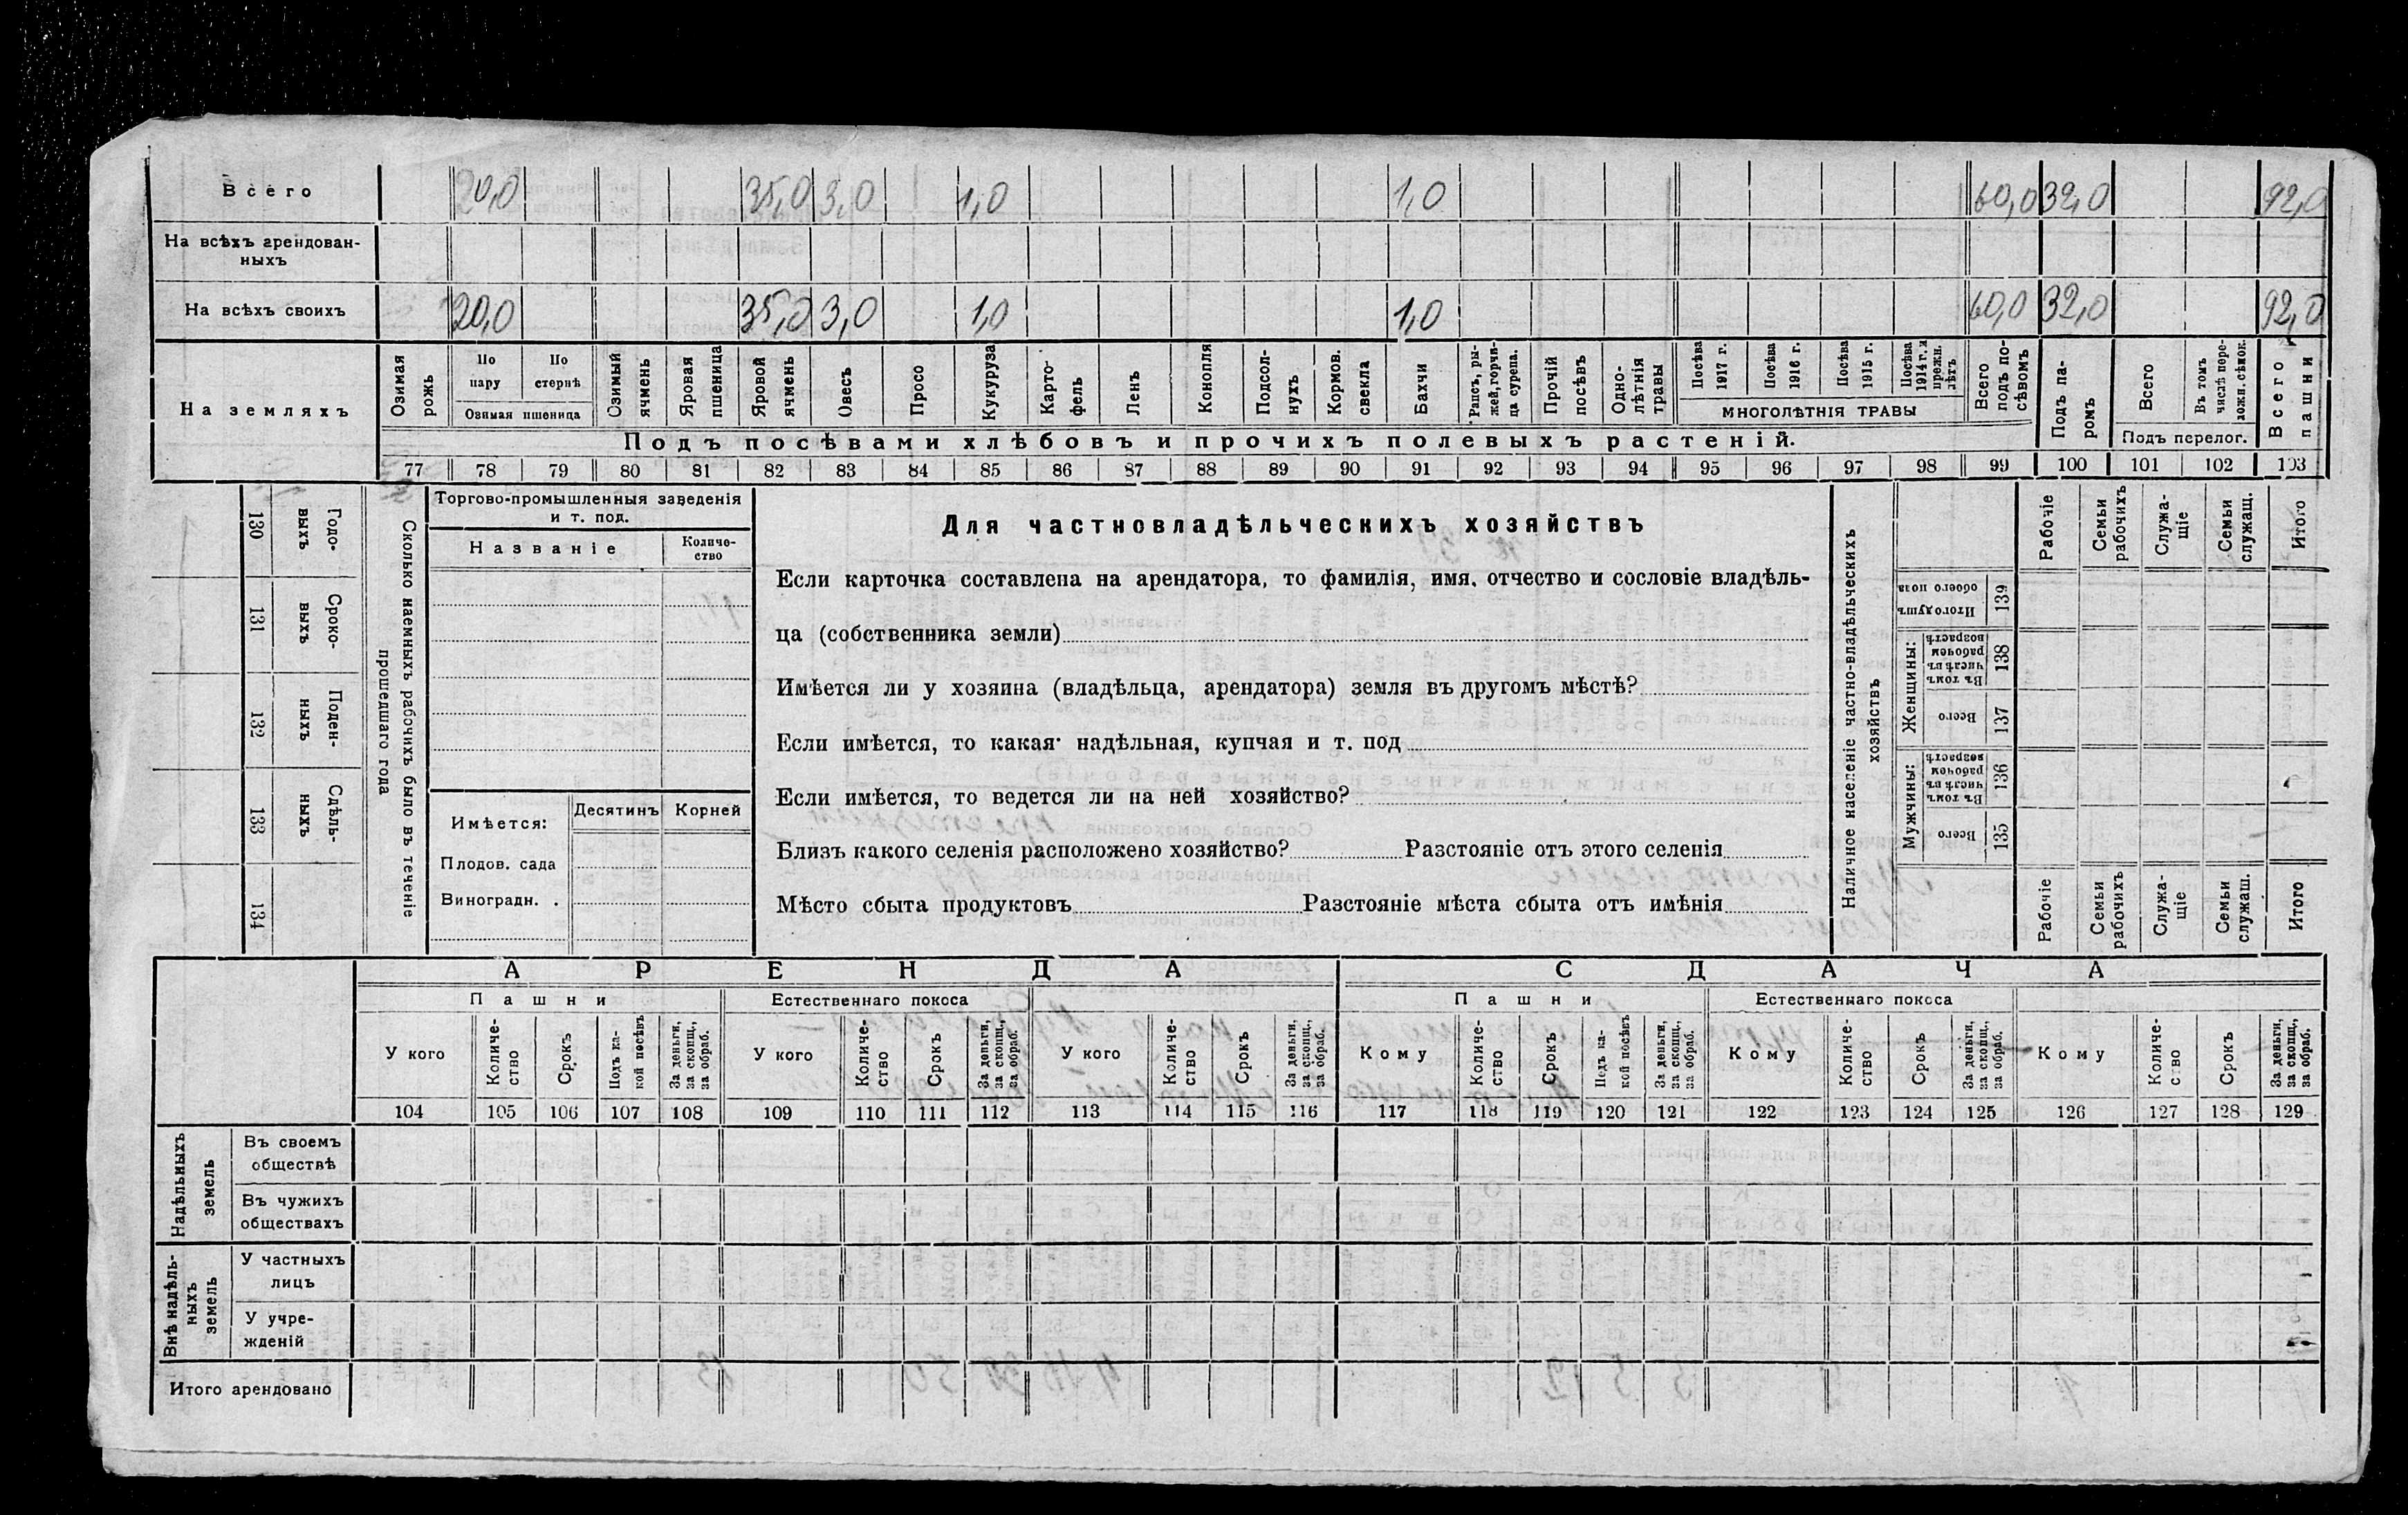 Всего 20,0 35,0 3,0 1,0 1,0 60,0 32,0 92,0
На всѣхъ арендован-
ныхъ
На всѣхъ своихъ 20,0 35,0 3,0 1,0 1,0 60,0 32,0 92,0
На земляхъ
Озимая рожь
По пару
По стернѣ
Озимая пшеница
Озимый ячмень
Яровая пшеница
Яровой ячмень
Овесъ
Просо
Кукуруза
Карто-
фель
Ленъ
Конопля
Подсол-
нухъ
Кормов. свекла
Бахчи
Рапсъ, ры-
жей, горчи-
ца сурепа.
Прочій посѣвъ
Одно-
лѣтнія
травы
Посѣва 1917 г.
Посѣва 1916 г.
Посѣва 1915 г.
Посѣва 1914 г. и прежн. лѣтъ
МНОГОЛѢТНІЯ ТРАВЫ
Всего подъ по-
сѣвомъ
Подъ па-
ромъ
Всего
Въ томъ числѣ пере-
ложн. сѣнок.
Подъ перелог.
Всего пашни
Подъ посѣвами хлѣбовъ и прочихъ полевыхъ растеній.
77 78 79 80 81 82 83 84 85 86 87 88 89 90 91 92 93 94 95 96 97 98 99 100 101 102 103
130 Годо-
выхъ
131 Сроко-
выхъ
132 Поден-
ныхъ
133 Сдѣль-
ныхъ
134
Сколько наемныхъ рабочихъ было въ теченіе
прошедшаго года
Торгово-промышленныя заведенія
и т. под.
Названіе
Количе-
ство
Имѣется:
Десятинъ Корней
Плодов. сада
Виноградн. .
Для частновладѣльческихъ хозяйствъ
Если карточка составлена на арендатора, то фамилія, имя, отчество и сословіе владѣль-
ца (собственника земли)
Имѣется ли у хозяина (владѣльца, арендатора) земля въ другомъ мѣстѣ?
Если имѣется, то какая· надѣльная, купчая и т. под
Если имѣется, то ведется ли на ней хозяйство?
Близъ какого селенія расположено хозяйство? Разстояніе отъ этого селенія
Мѣсто сбыта продуктовъ Разстояніе мѣста сбыта отъ имѣнія
Наличное населеніе частно-владѣльческихъ
хозяйствъ
Рабочіе
Семьи рабочихъ
Служа-
щіе
Семьи служащ.
Итого
Итого душъ обоего пола 139
Женщины:
Въ томъ числѣ въ рабочемъ возрастѣ 138
Всего 137
Мужчины:
Въ томъ числѣ въ рабочемъ возрастѣ 136
Всего 135
Рабочіе
Семьи рабочихъ
Служа-
щіе
Семьи служащ.
Итого
АРЕНДА
СДАЧА
Пашни
Естественнаго покоса
Пашни
Естественнаго покоса
У кого
Количе-
ство
Срокъ
Подъ ка-
кой посѣвъ
За деньги, за скопщ., за обраб.
У кого
Количе-
ство
Срокъ
За деньги, за скопщ., за обраб.
У кого
Количе-
ство
Срокъ
За деньги, за скопщ., за обраб.
Кому
Количе-
ство
Срокъ
Подъ ка-
кой посѣвъ
За деньги, за скопщ., за обраб.
Кому
Количе-
ство
Срокъ
За деньги, за скопщ., за обраб.
Кому
Количе-
ство
Срокъ
За деньги, за скопщ., за обраб.
104 105 106 107 108 109 110 111 112 113 114 115 116 117 118 119 120 121 122 123 124 125 126 127 128 129
Надѣльныхъ земель
Въ своемъ
обществѣ
Въ чужихъ
обществахъ
Внѣ надѣль-
ныхъ
земель
У частныхъ
лицъ
У учре-
жденій
Итого арендовано